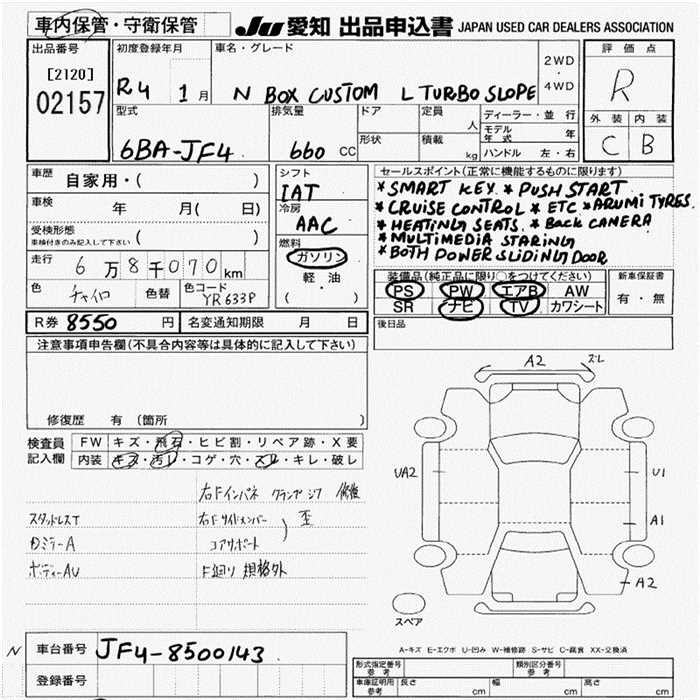 車内保管・守衛保管 JU 愛知 出品申込書 JAPAN USED CAR DEALERS ASSOCIATION
出品番号 初度登録年月 車名・グレード 評価点
[2120]
02157
R4 1月 N BOX CUSTOM L TURBO SLOPE 2WD・4WD R
型式 排気量 ドア 定員 人 ディーラー・並行 外装 内装
6BA-JF4 660 CC 形状 積載 kg モデル年式 年 C B
ハンドル 左・右
車歴 自家用・( )
シフト IAT
セールスポイント(正常に機能するものに限ります)
* SMART KEY * PUSH START
* CRUISE CONTROL * ETC * ARUMI TYRES.
* HEATING SEATS. * BACK CAMERA
* MULTIMEDIA STARING
* BOTH POWER SLIDING DOOR
車検 年 月( 日)
冷房 AAC
受検形態
車検付きのみ記入して下さい ( )
燃料 ガソリン 軽・油 ( )
走行 6万8千070km
色 チャイロ 色替 色コード YR633P
装備品(純正品に限り○をつけてください) 新車保証書
PS PW エアB AW 有・無
SR ナビ TV カワシート
R券 8550 円 名変通知期限 月 日
後日品
注意事項申告欄(不具合内容等は具体的に記入して下さい)
修復歴 有 (箇所 )
検査員 FW キズ・飛石・ヒビ割・リペア跡・X要
記入欄 内装 キズ・汚レ・コゲ・穴・スレ・キレ・破レ
A2 ズレ
UA2 U1
A1
A2
スペア
右Fインパネ クランプ シワ 修復
スタッドレスT 右Fサイドメンバー 歪
Dミラー A コアサポート
ボディーAU F廻り 規格外
A-キズ E-エクボ U-凹み W-補修跡 S-サビ C-腐食 XX-交換済
N 車台番号 JF4-8500143
登録番号
形式指定番号 参考 類別区分番号 参考
車庫証明用 参考 長さ cm 幅 cm 高さ cm